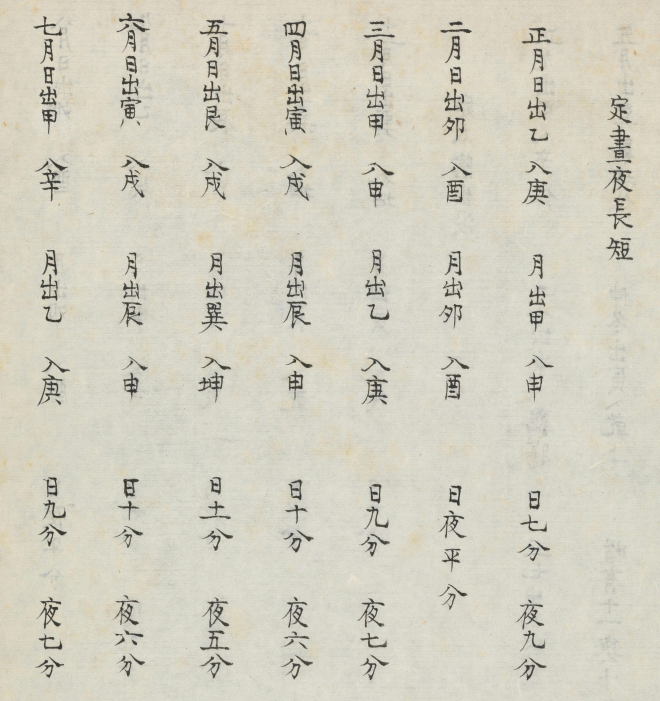 定晝夜長短
正月日出乙 入庚 月出甲 入申 日七分 夜九分
二月日出夘 入酉 月出夘 入酉 日夜平分
三月日出甲 入申 月出乙 入庚 日九分 夜七分
四月日出寅 入戍 月出辰 入申 日十分 夜六分
五月日出艮 入戍 月出巽 入坤 日十一分 夜五分
六月日出寅 入戍 月出辰 入申 日十分 夜六分
七月日出甲 入辛 月出乙 入庚 日九分 夜七分